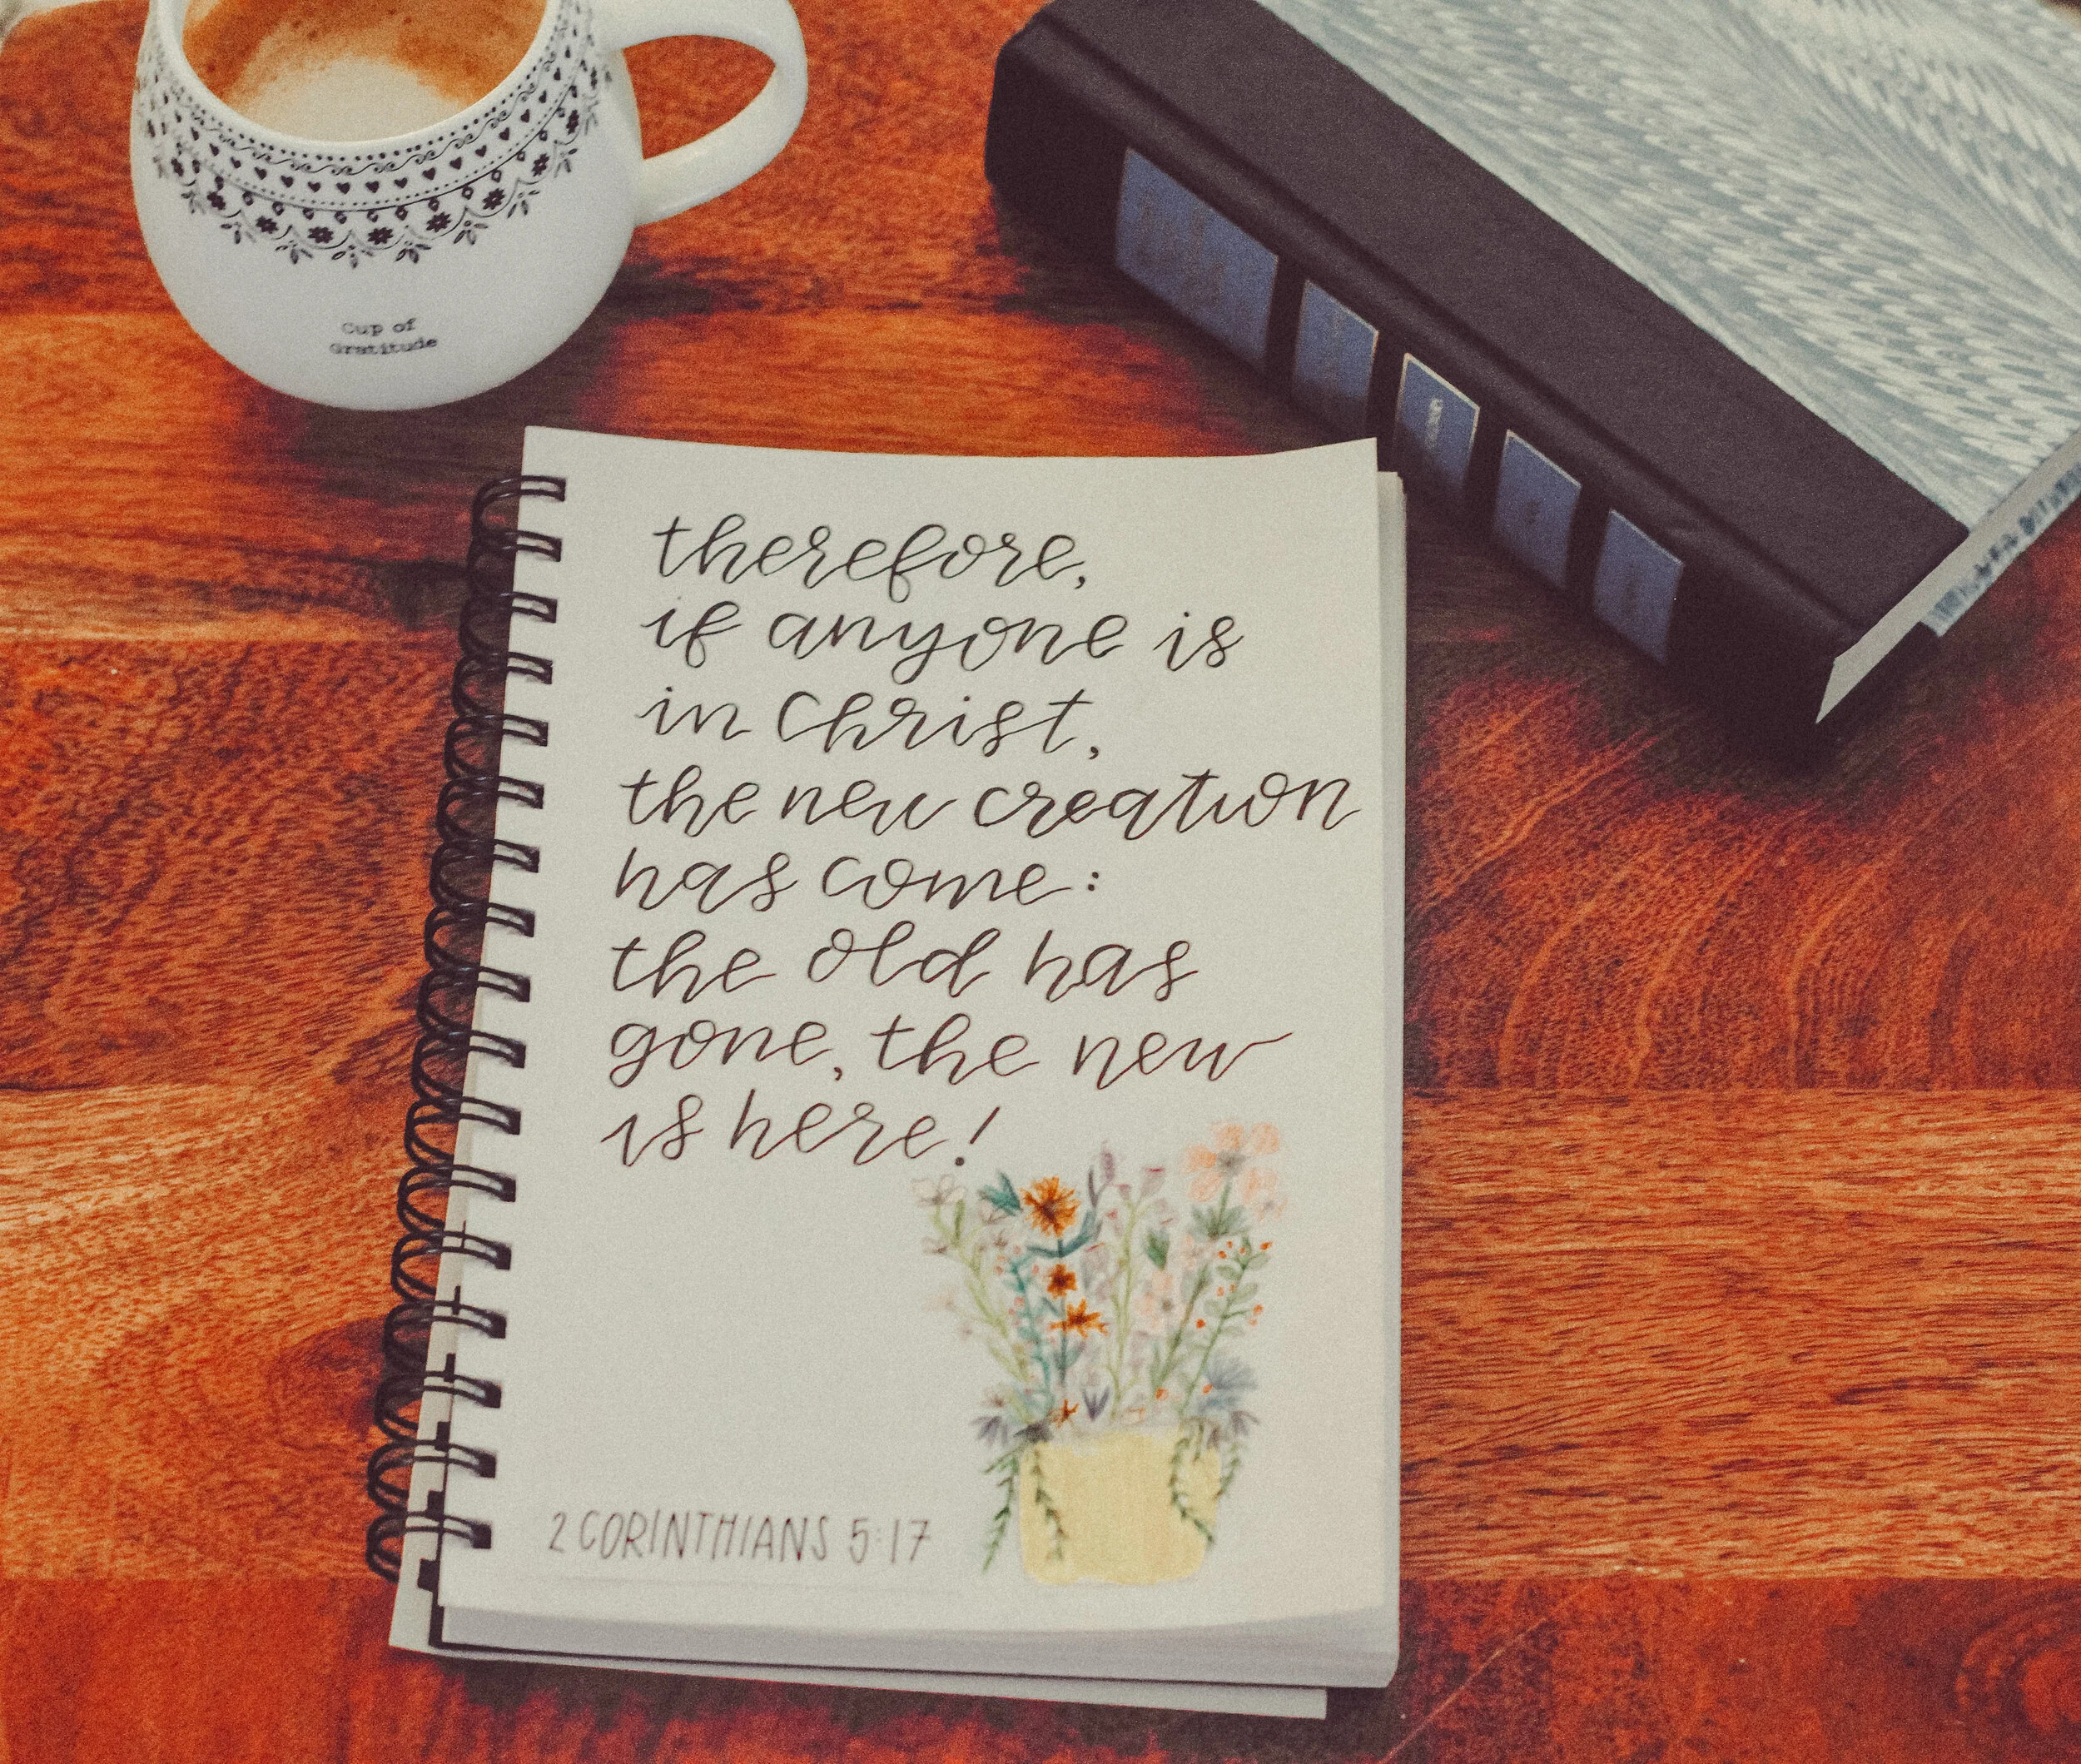 Cup of
Gratitude
therefore,
if anyone is
in Christ,
the new creation
has come:
the old has
gone, the new
is here!
2 CORINTHIANS 5:17